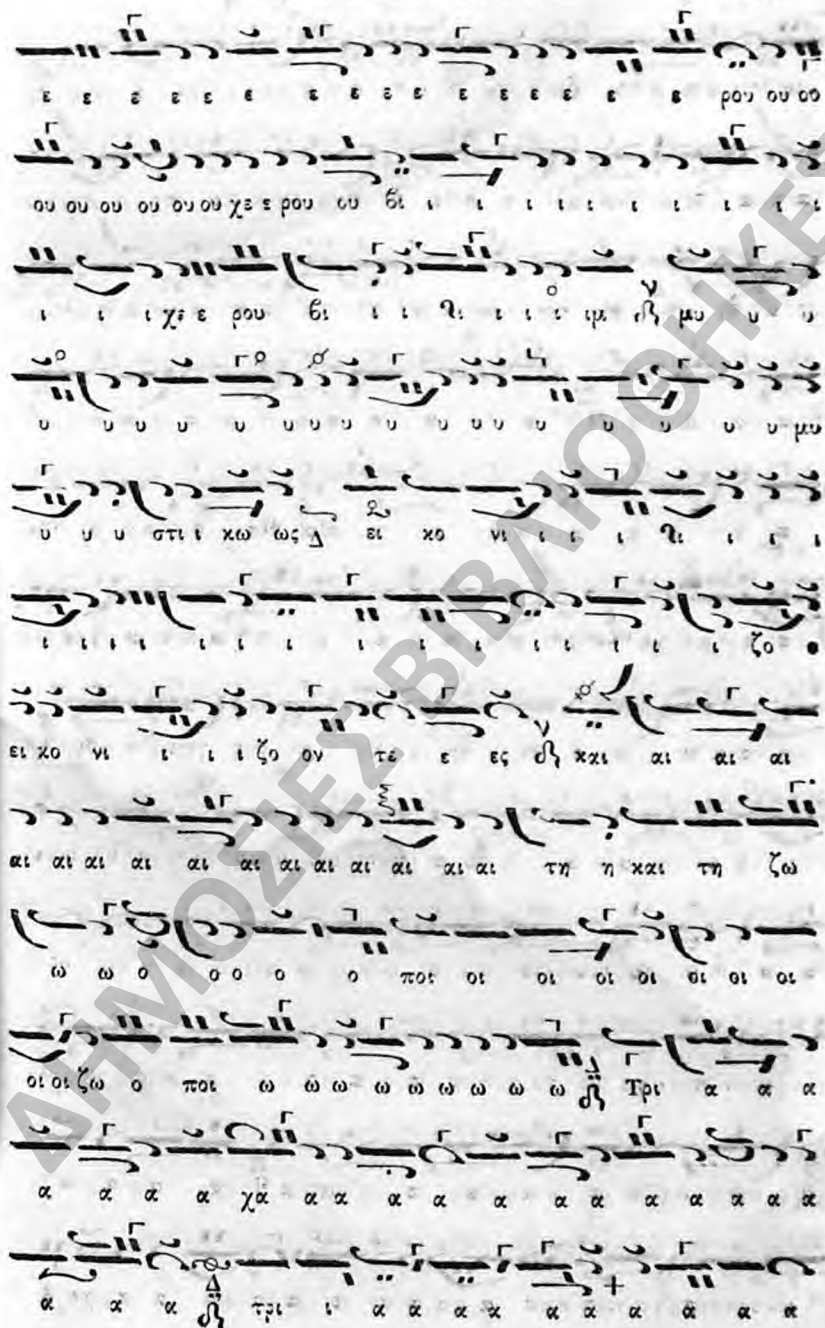 ε ε ε ε ε ε ε ε ε ε ε ε ε ε ε ε ρου ου ου
ου ου ου ου ου ου χε ε ρου ου βι ι ι ι ι ι ι ι ι ι ι
ι ι ι χε ε ρου βι ι ι λι ι ι ι ιμ μυ υ υ υ
υ υ υ υ υ υ υ υ υ υ υ υ υ υ υ υ μυ
υ υ υ στι ι κω ως Δ ει κο νι ι ι ι λι ι ι ι
ι ι ι ι ι ι ι ι ι ι ι ι ι ι ι ζο ο
ει κο νι ι ι ι ζο ον τε ε ες και αι αι αι
αι αι αι αι αι αι αι αι αι αι αι τη η και τη ζω
ω ω ο ο ο ο ο ποι οι οι οι οι οι οι οι
οι οι ζω ο ποι ω ω ω ω ω ω ω ω ω Δ Τρι α α α
α α α α χα α α α α α α α α α α α α
α α α Δ τρι ι α α α α α α α α α α
ΔΗΜΟΣΙΕΣ ΒΙΒΛΙΟΘΗΚΕΣ